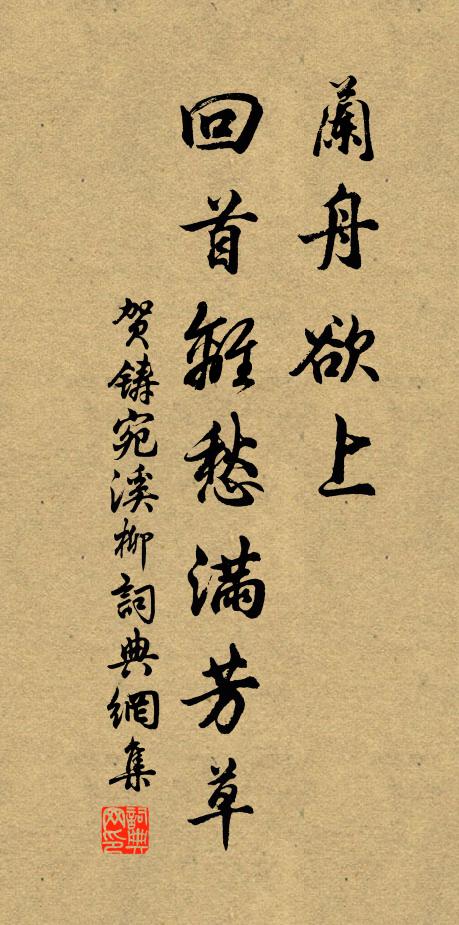 蘭舟欲上
回首離愁滿芳草
賀鑄宛溪柳詞典網集
詞典網印